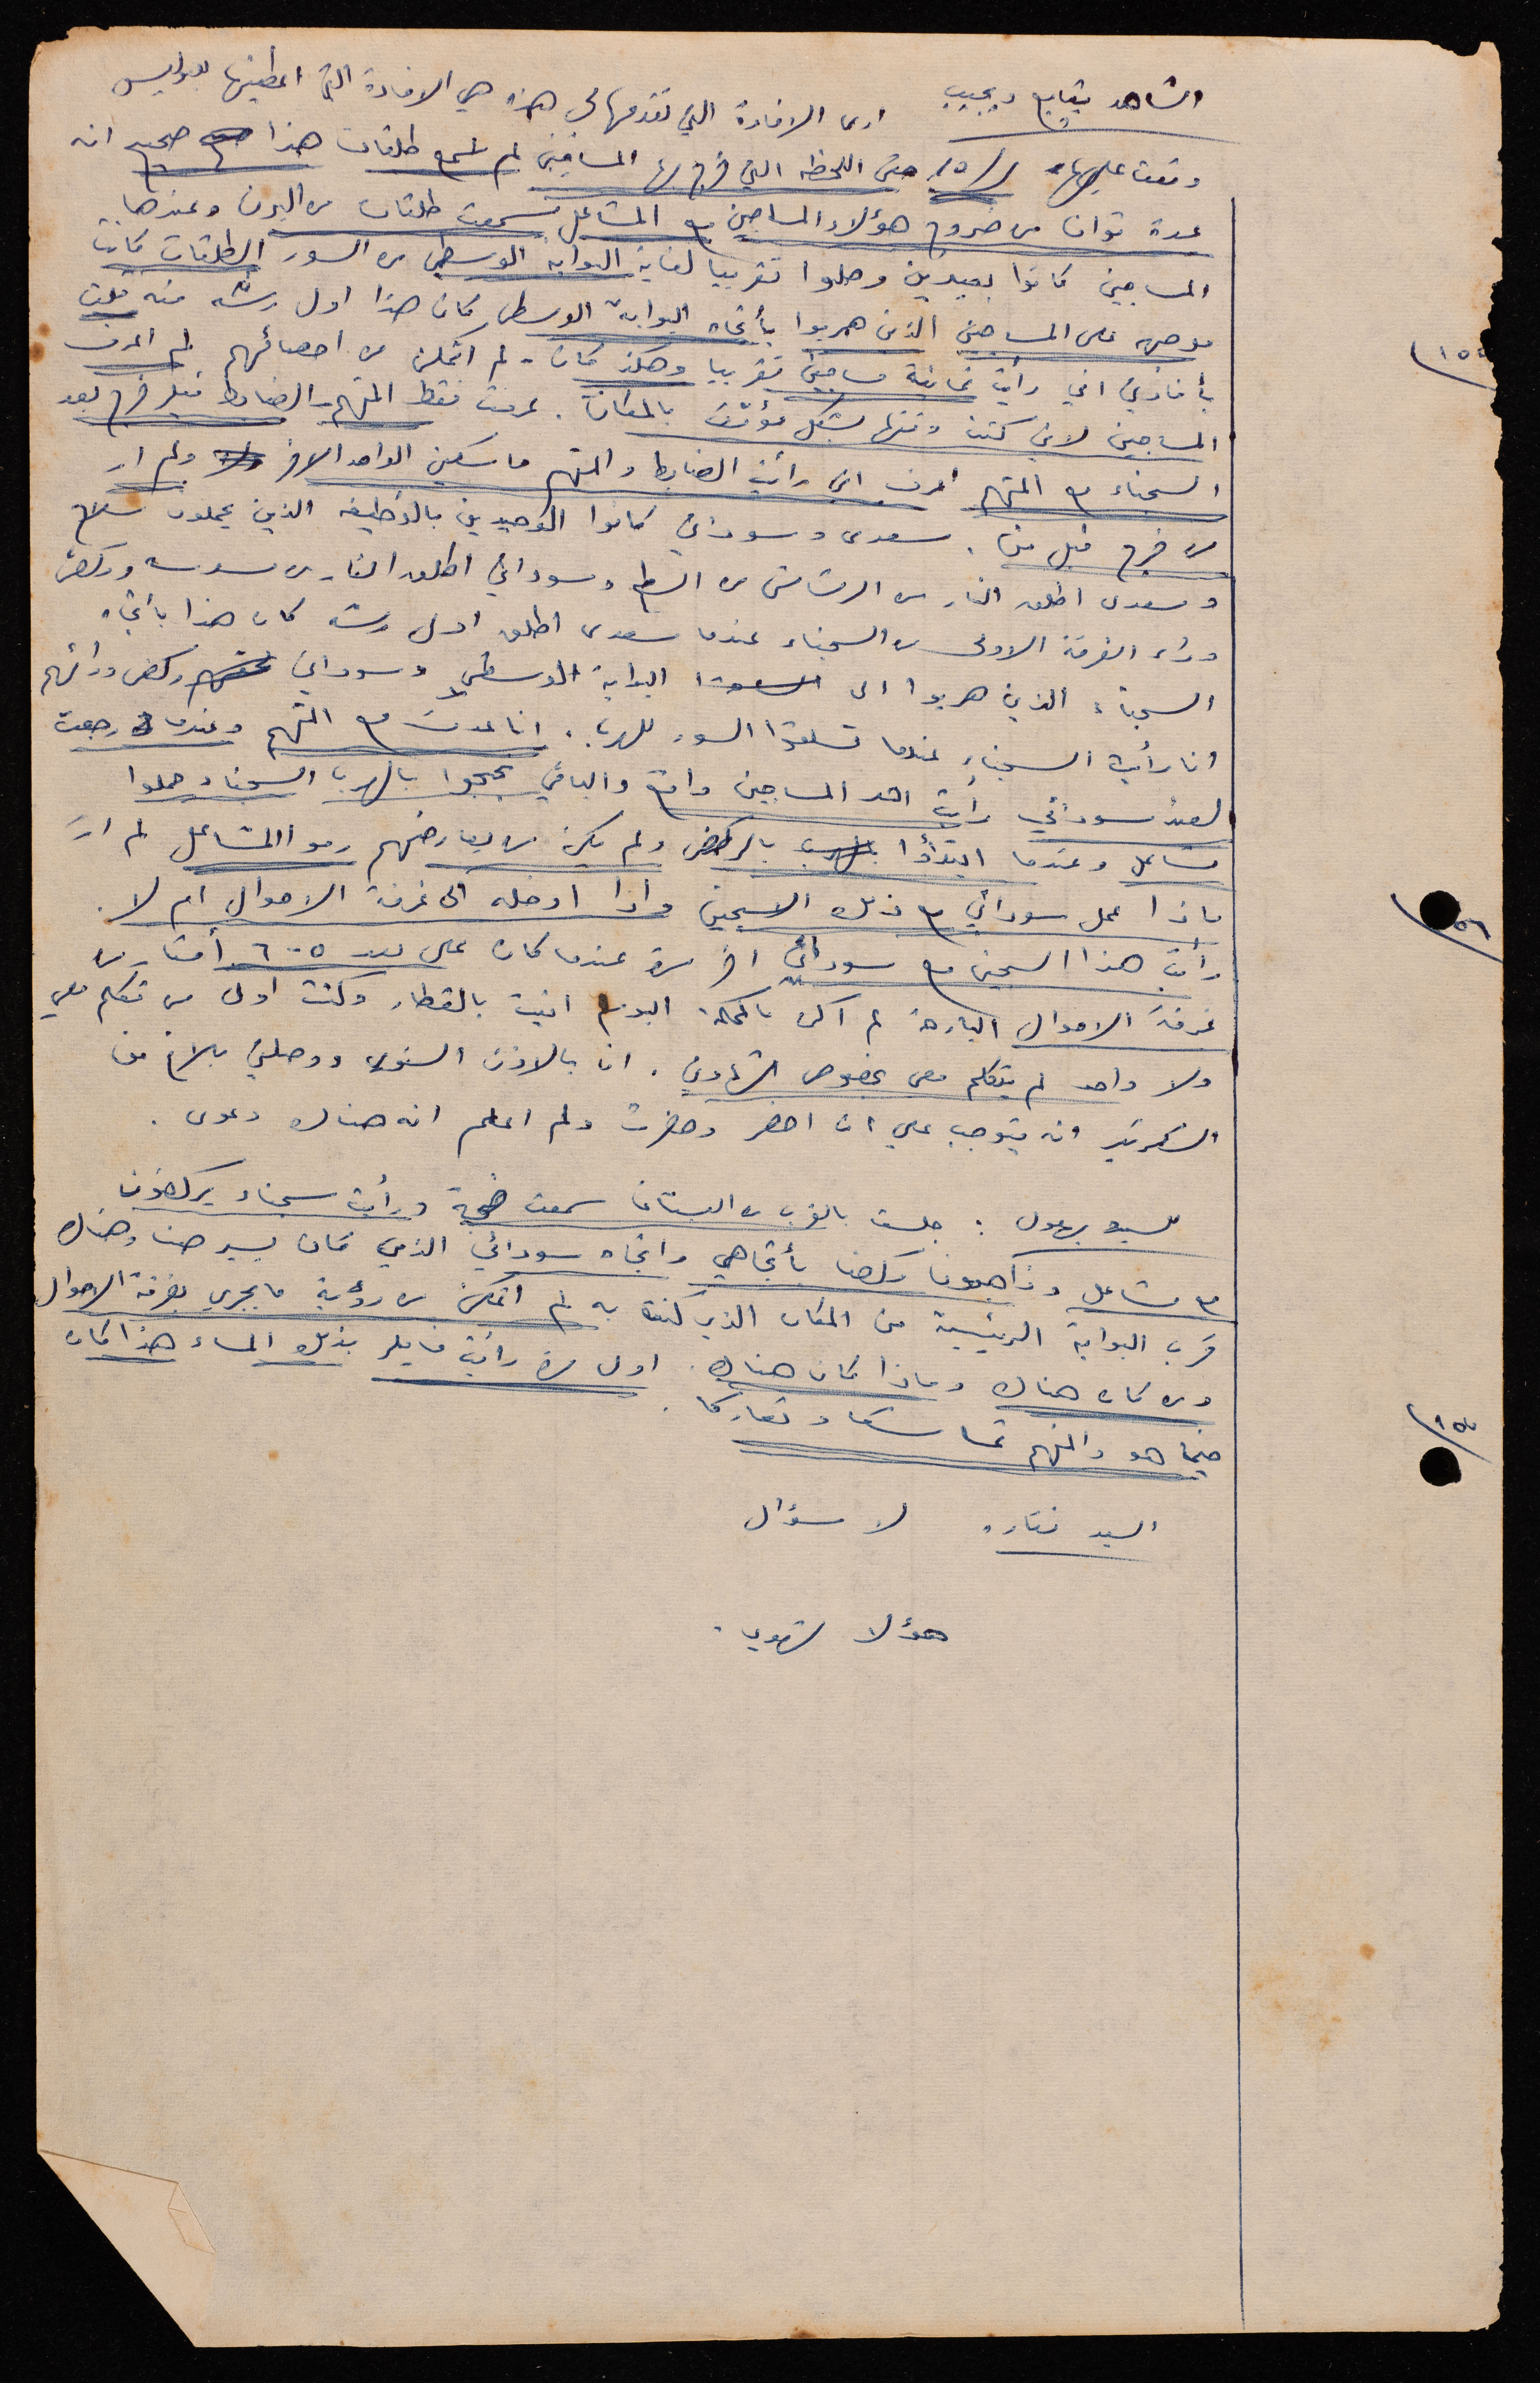 الشاهد يتابع ويجيب ارى الافادة التي تقدمها لي هذه هي الافادة التي اعطيتها للبوليس
وقعت عليها حتى اللحظه التي خرج بها المساجين لم نسمع طلقات هذا صحيح انه
عدة ثوان من خروج هؤلاء المساجين مع المشاعل سمعت طلقات من البرن وعندها
المساجين كانوا بعيدين وصلوا تقريبا لغاية البوابه الوسطى من السور الطلقات كانت
موجهه على المساجين الذين هربوا بأتجاه البوابة الوسطى كان هذا اول رشه منه قلت
١٥٥
بأفادتي اني رأيت ثمانية مساجين تقريبا وهكذا كان - لم اتمكن من احصائهم لم اعرف
المساجين لاني كنت وقتها بشكل مؤقت بالمكان. عرفت فقط المتهم والضابط فيلر خرج بعد
السجناء مع المتهم اعرف اني رأيت الضابط والمتهم ماسكين الواحد الاخر ولم ار
من خرج قبل من. سعدى وسوداني كانوا الوحيدين بالوظيفه الذين يحملون سلاح
وسعدى اطلق النار من الرشاش من السطح وسوداني اطلق النار من مسدسه وركض
وراء الفرقة الاولى من السجناء عندما سعدى اطلق اول رشه كان هذا بأتجاه
السجناء الذين هربوا الى البوابة الوسطى وسوداني ركض ورائهم
انا رأيت السجناء عندما تسلقوا السور للهرب. انا عدت مع المتهم وعندما رجعت
لعند سوداني رأيت احد المساجين واقع والباقي نجحوا بالهرب السجناء حملوا
مشاعل وعندما ابتدأوا بالركض ولم يكن من يعارضهم رموا المشاعل لم ار
ماذا عمل سوداني مع ذلك السجين واذا ادخله الى غرفة الاحوال ام لا.
رأيت هذا السجين مع سوداني اخر مرة عندما كان على بعد ٥-٦ أمتار من
غرفة الاحوال البارحة لم اكن بالمحكمة اليوم اتيت بالقطار وكنت اول من تكلم معي
ولا واحد لم يتكلم معي بخصوص شهادتي. انا بالاذن السنوي ووصلني بلاغ من
السكرتير انه يتوجب علي ان احضر وحضرت ولم اعلم انه هناك دعوى.
للسيد : جلست بالقرب من البستان سمعت ضجة ورأيت سجناء يركضون
مع مشاعل وركضنا بأتجاهي واتجاه سوداني الذي كان يسير هنا وهناك
قرب البوابة الرئيسية من المكان الذي كنت به لم اتمكن من رؤية ما يجري بغرفة الاحوال
ومن كان هناك وماذا كان هناك. اول مرة رأيت فايلر بذلك المساء هذا كان
١٥٧
حينما هو والمتهم تماسكا وتعاركا.
السيد لا سؤال
هؤلاء شهودي.